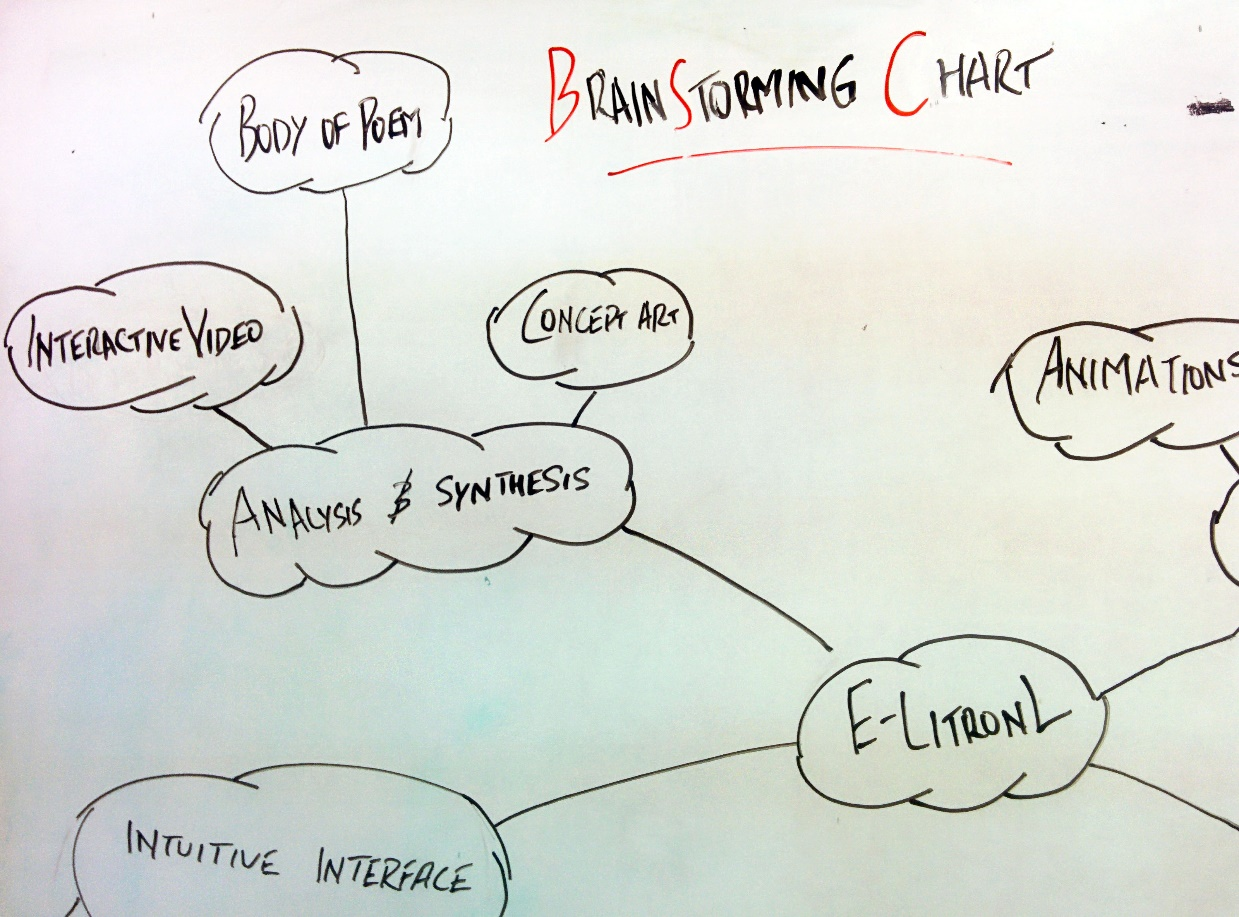 BRAINSTORMING CHART
BODY OF POEM
INTERACTIVE VIDEO
CONCEPT ART
ANIMATIONS
ANALYSIS & SYNTHESIS
E-LITRONL
INTUITIVE INTERFACE